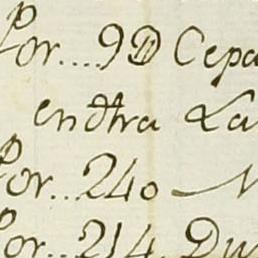 Por....9D Cepa
en dtra La
Por...240
Por...214. Du